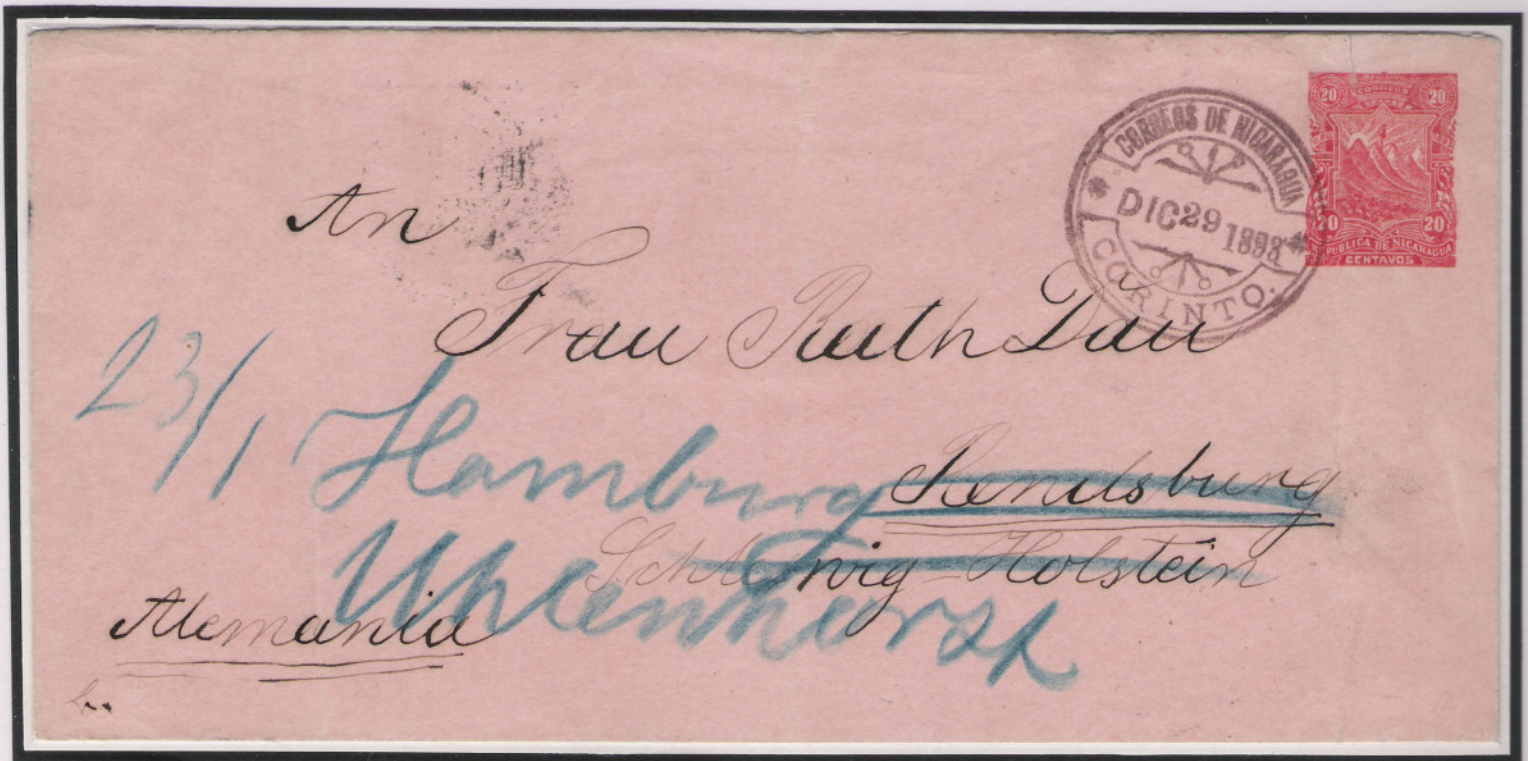 20 CORREOS 20
20 20
REPUBLICA DE NICARAGUA
CENTAVOS
CORREOS DE NICARAGUA
DIC 29 1893
CORINTO.
An
Frau Rath Dau
23/1 Hamburg
Rendsburg
Schleswig-Holstein
Uhlenhorst
Alemania